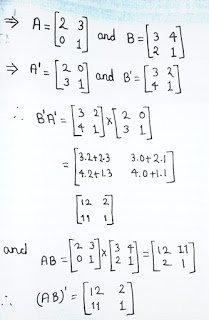 ⇒ A = [2 3; 0 1] and B = [3 4; 2 1]
⇒ A' = [2 0; 3 1] and B' = [3 2; 4 1]
∴ B'A' = [3 2; 4 1] × [2 0; 3 1]
= [3.2+2.3 3.0+2.1; 4.2+1.3 4.0+1.1]
[12 2; 11 1]
and AB = [2 3; 0 1] × [3 4; 2 1] = [12 11; 2 1]
∴ (AB)' = [12 2; 11 1]